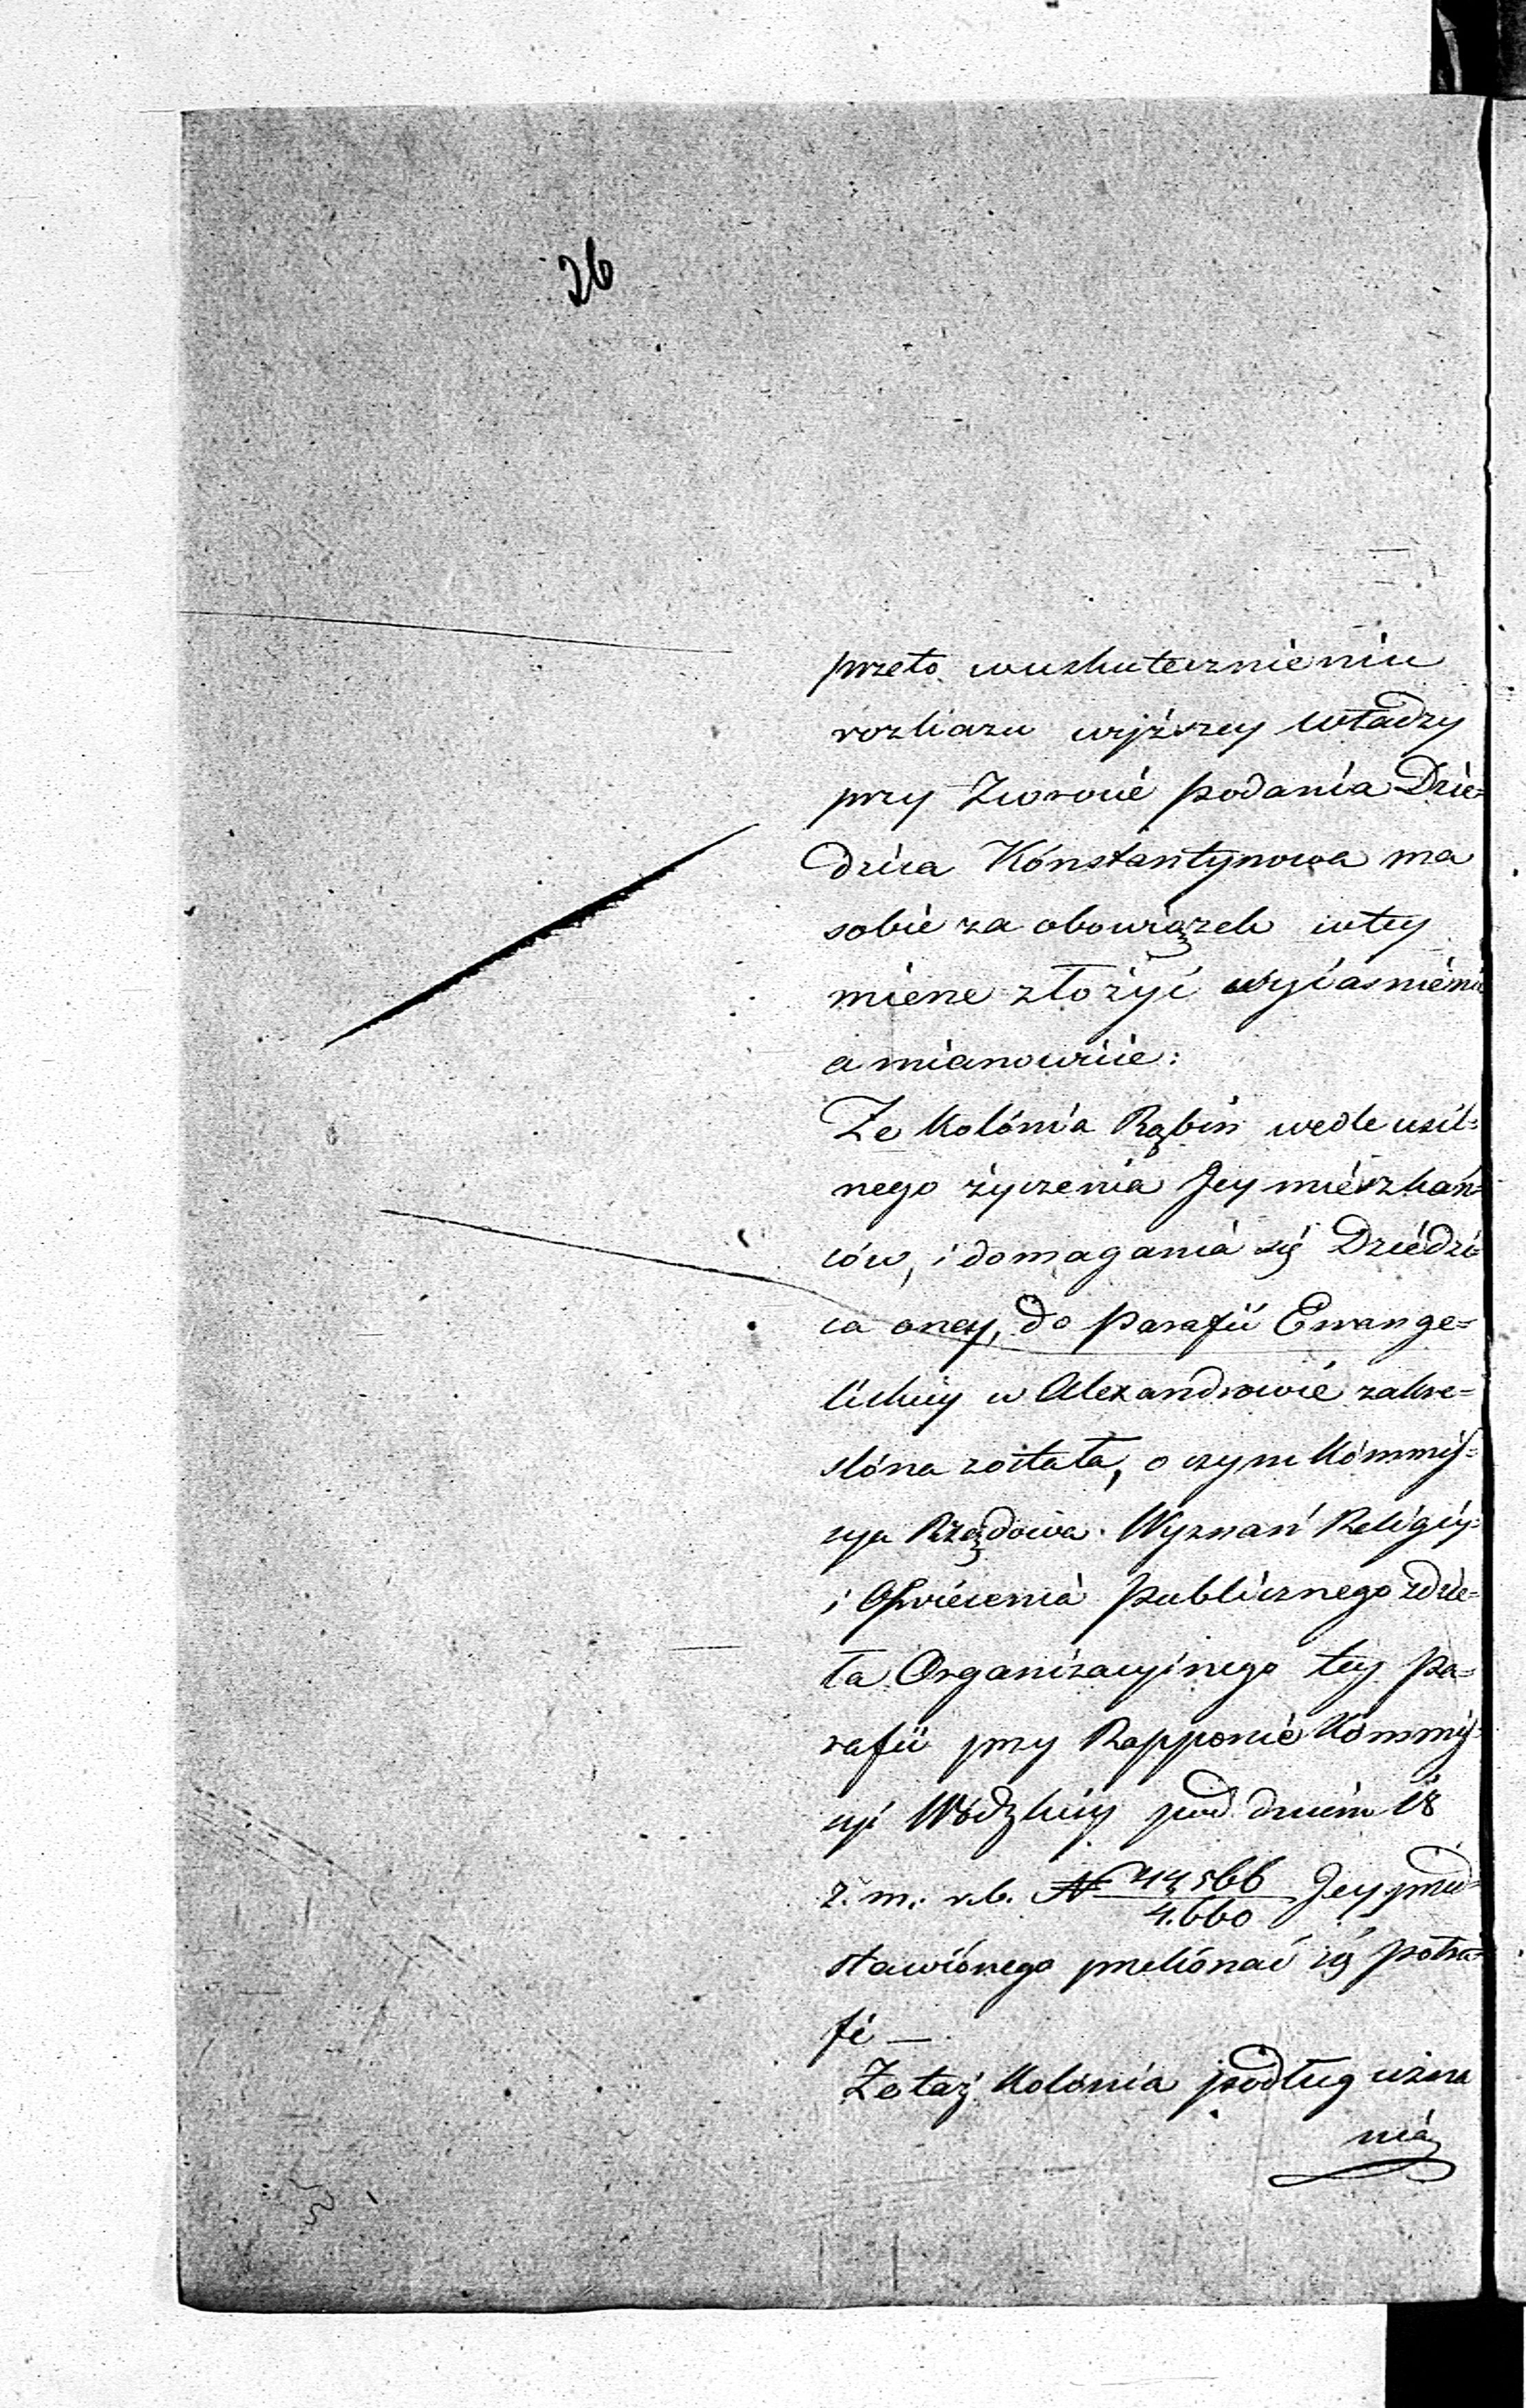 26
przeto wuskutecznieniu
rozkazu wyższey Władzy
przy Zwrocie podania Dzie=
dzica Konstantynowa ma
sobie za obowiązek wtey
mierze złożyć wyiasnienie
a mianowicie:
Ze Kolónia Rąbin wedle usil=
nego życzenia Jey mieszkań=
ców, i domagania się Dziedzi
ca oney, do Parafii Ewange=
lickiey w Alexandrowie zakre=
slóna została, o czym Kómmis=
sya Rządowa Wyznań Religiy:
i Oświecenia Publicznego zdzie=
ła Organizacyinego tey Pa=
rafii przy Rapporcie Kommis=
syi Wdzkiey pod dniem 18
z. m. r.b. N 44,566/4.660 Jey przed=
stawiónego przekónać się potra=
fi —
Ze taż Kolónia podług uzna
nia